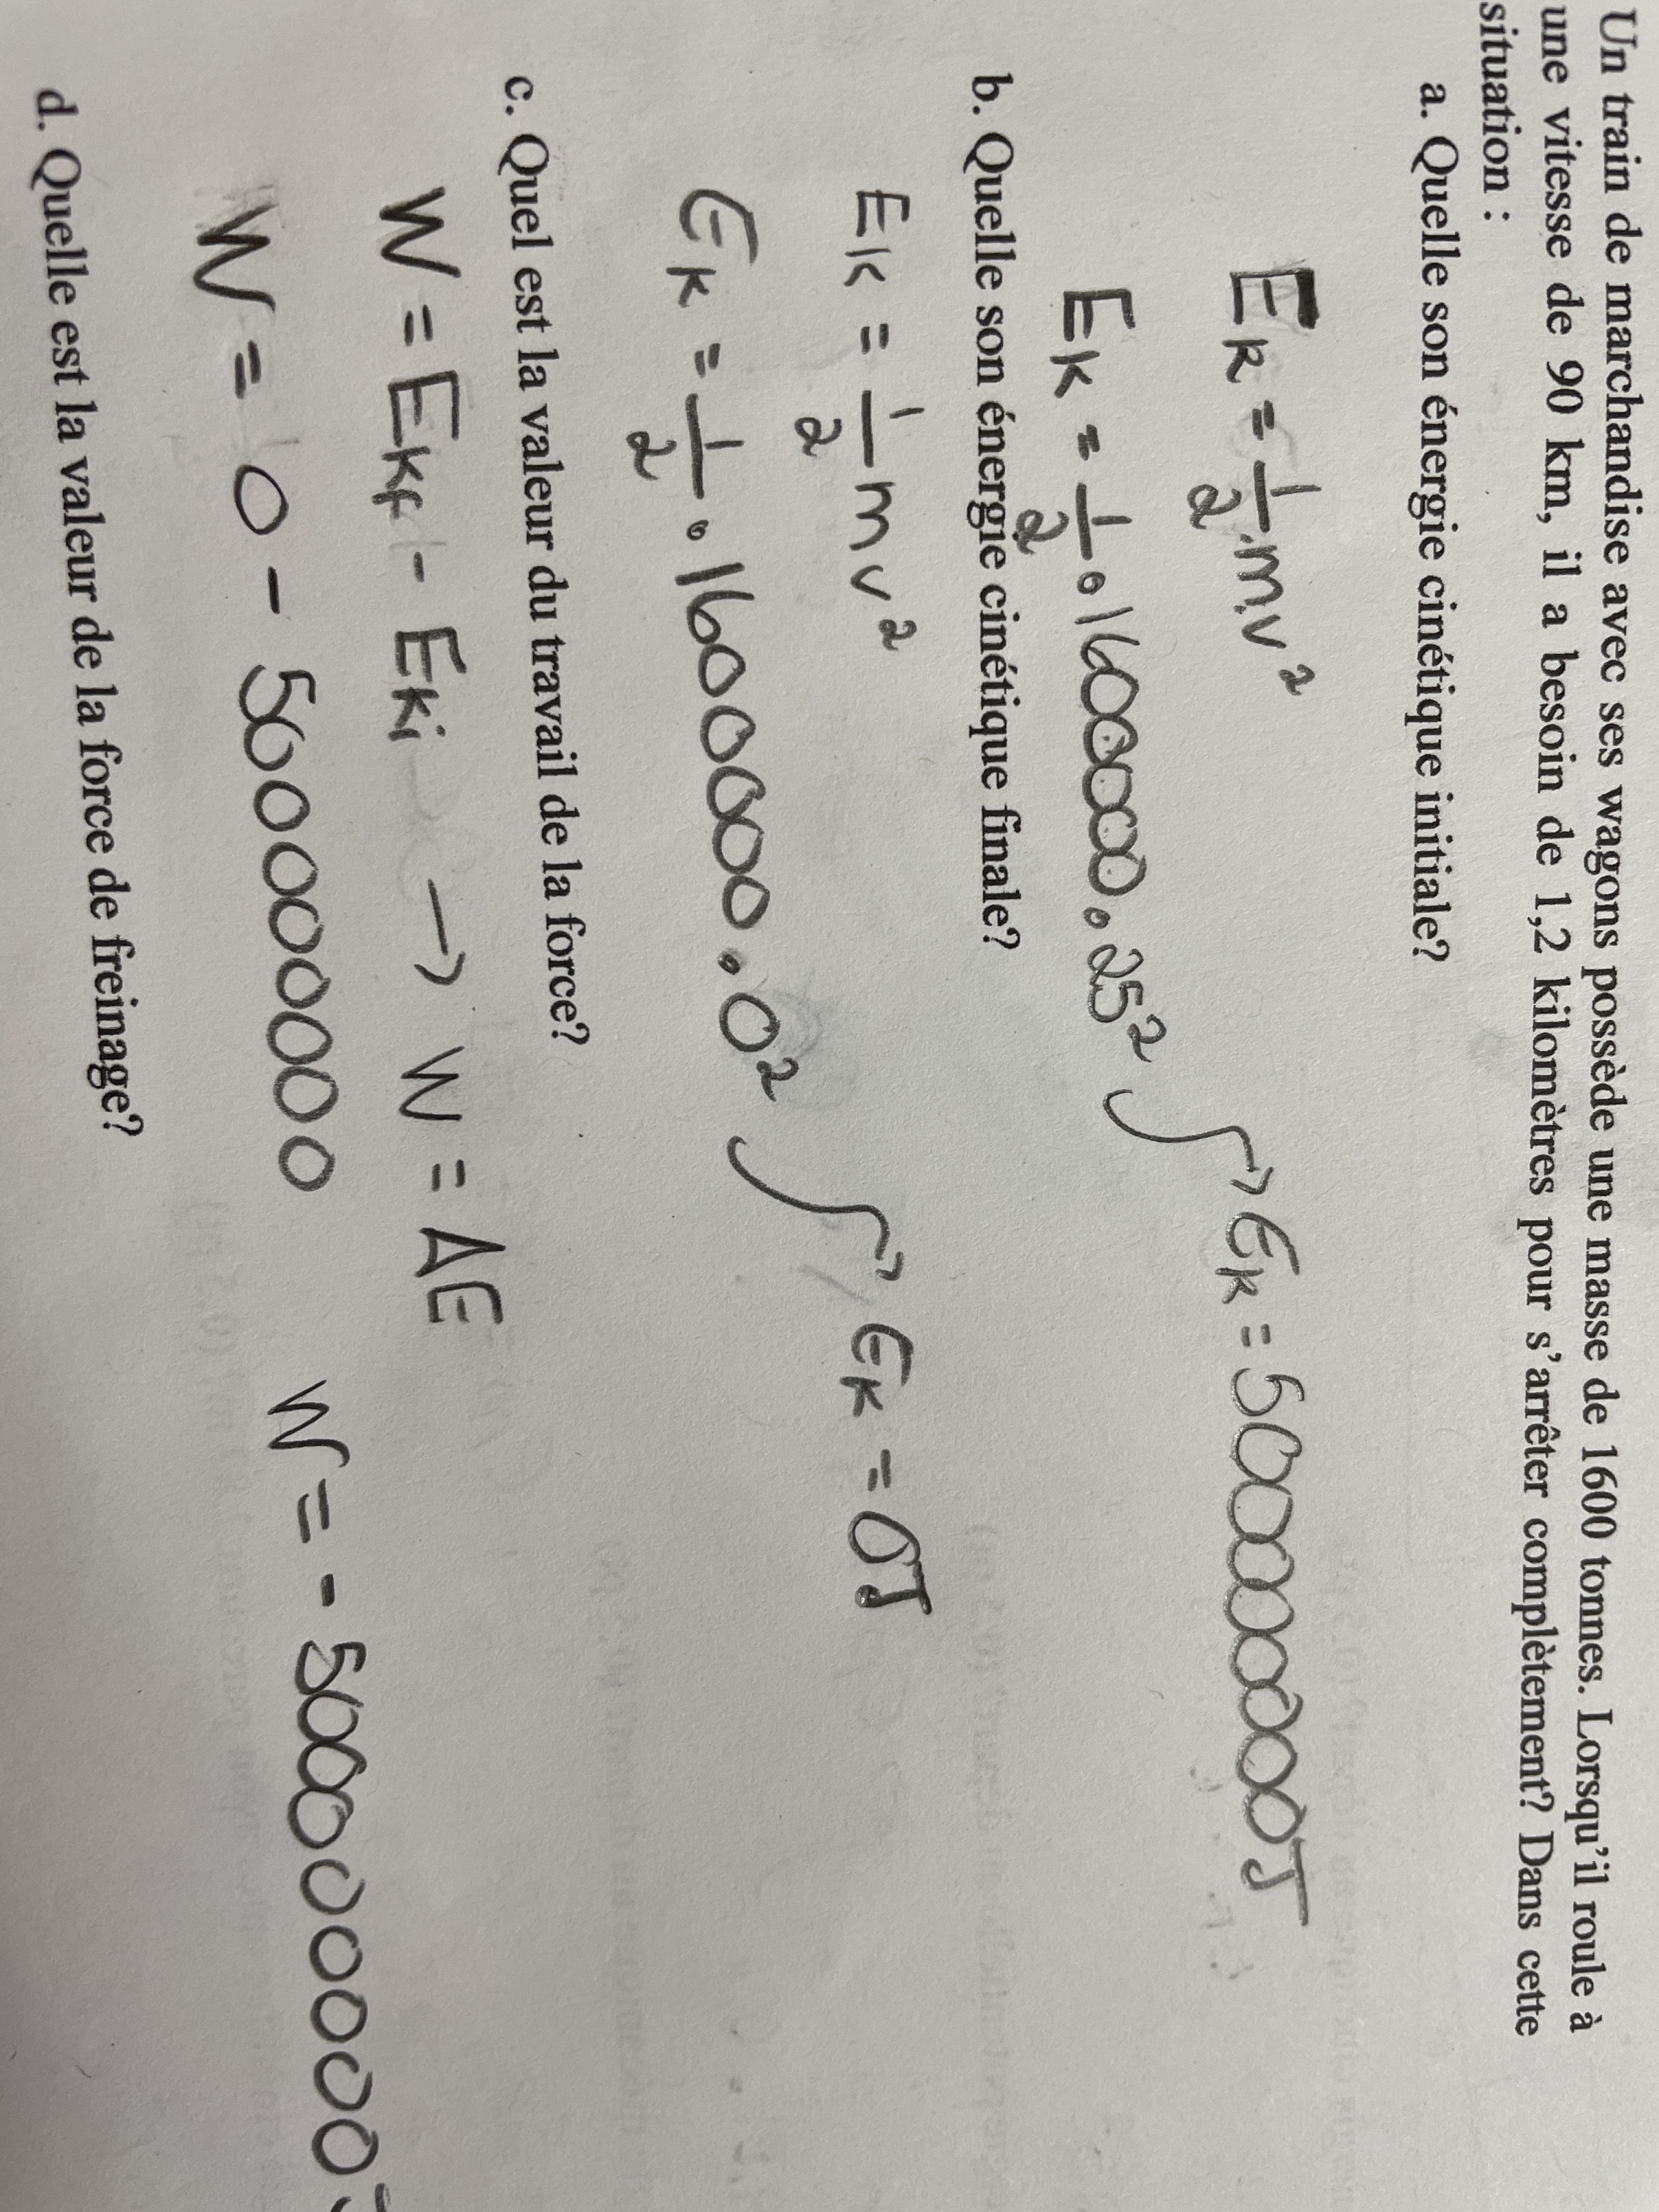 Un train de marchandise avec ses wagons possède une masse de 1600 tonnes. Lorsqu'il roule à
une vitesse de 90 km, il a besoin de 1,2 kilomètres pour s'arrêter complètement? Dans cette
situation :
a. Quelle son énergie cinétique initiale?
Ek = 1/2 . mv²
Ek = 1/2 . 1600000 . 25² → Ek = 500000000J
b. Quelle son énergie cinétique finale?
Ek = 1/2 mv²
Ek = 1/2 . 1600000 . 0² → Ek = 0J
c. Quel est la valeur du travail de la force?
W = Ekf - Eki → W = ΔE
W = 0 - 500000000 W = - 500000000J
d. Quelle est la valeur de la force de freinage?